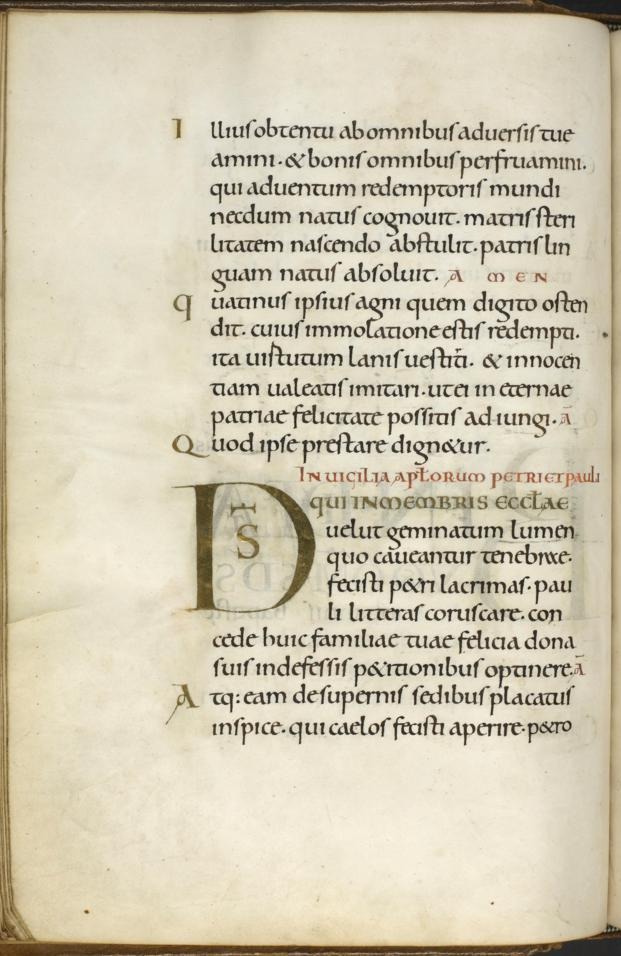 Illius obtentu ab omnibus adversis tue
amini · & bonis omnibus perfruamini ·
qui adventum redemptoris mundi
necdum natus cognouit · matris steri
litatem nascendo abstulit · patris lin
guam natus absoluit · A M E N
Quatinus ipsius agni quem digito osten
dit · cuius immolatione estis redempti ·
ita uirtutum lanis uestiri · & innocen
tiam ualeatis imitari · ut ei in eternae
patriae felicitate possitis adiungi · Ā
Quod ipse prestare dign&ur ·
IN UIGILIA APŁORUM PETRI ET pauli
D̄S QUI IN MEMBRIS ECCŁAE
uelut geminatum lumen
quo caueantur tenebrae ·
fecisti p&ri lacrimas · pau
li litteras coruscare · con
cede huic familiae tuae felicia dona
suis indefessis p&itionibus optinere · Ā
Atq: eam de supernis sedibus placatus
inspice · qui caelos fecisti aperire · p&ro